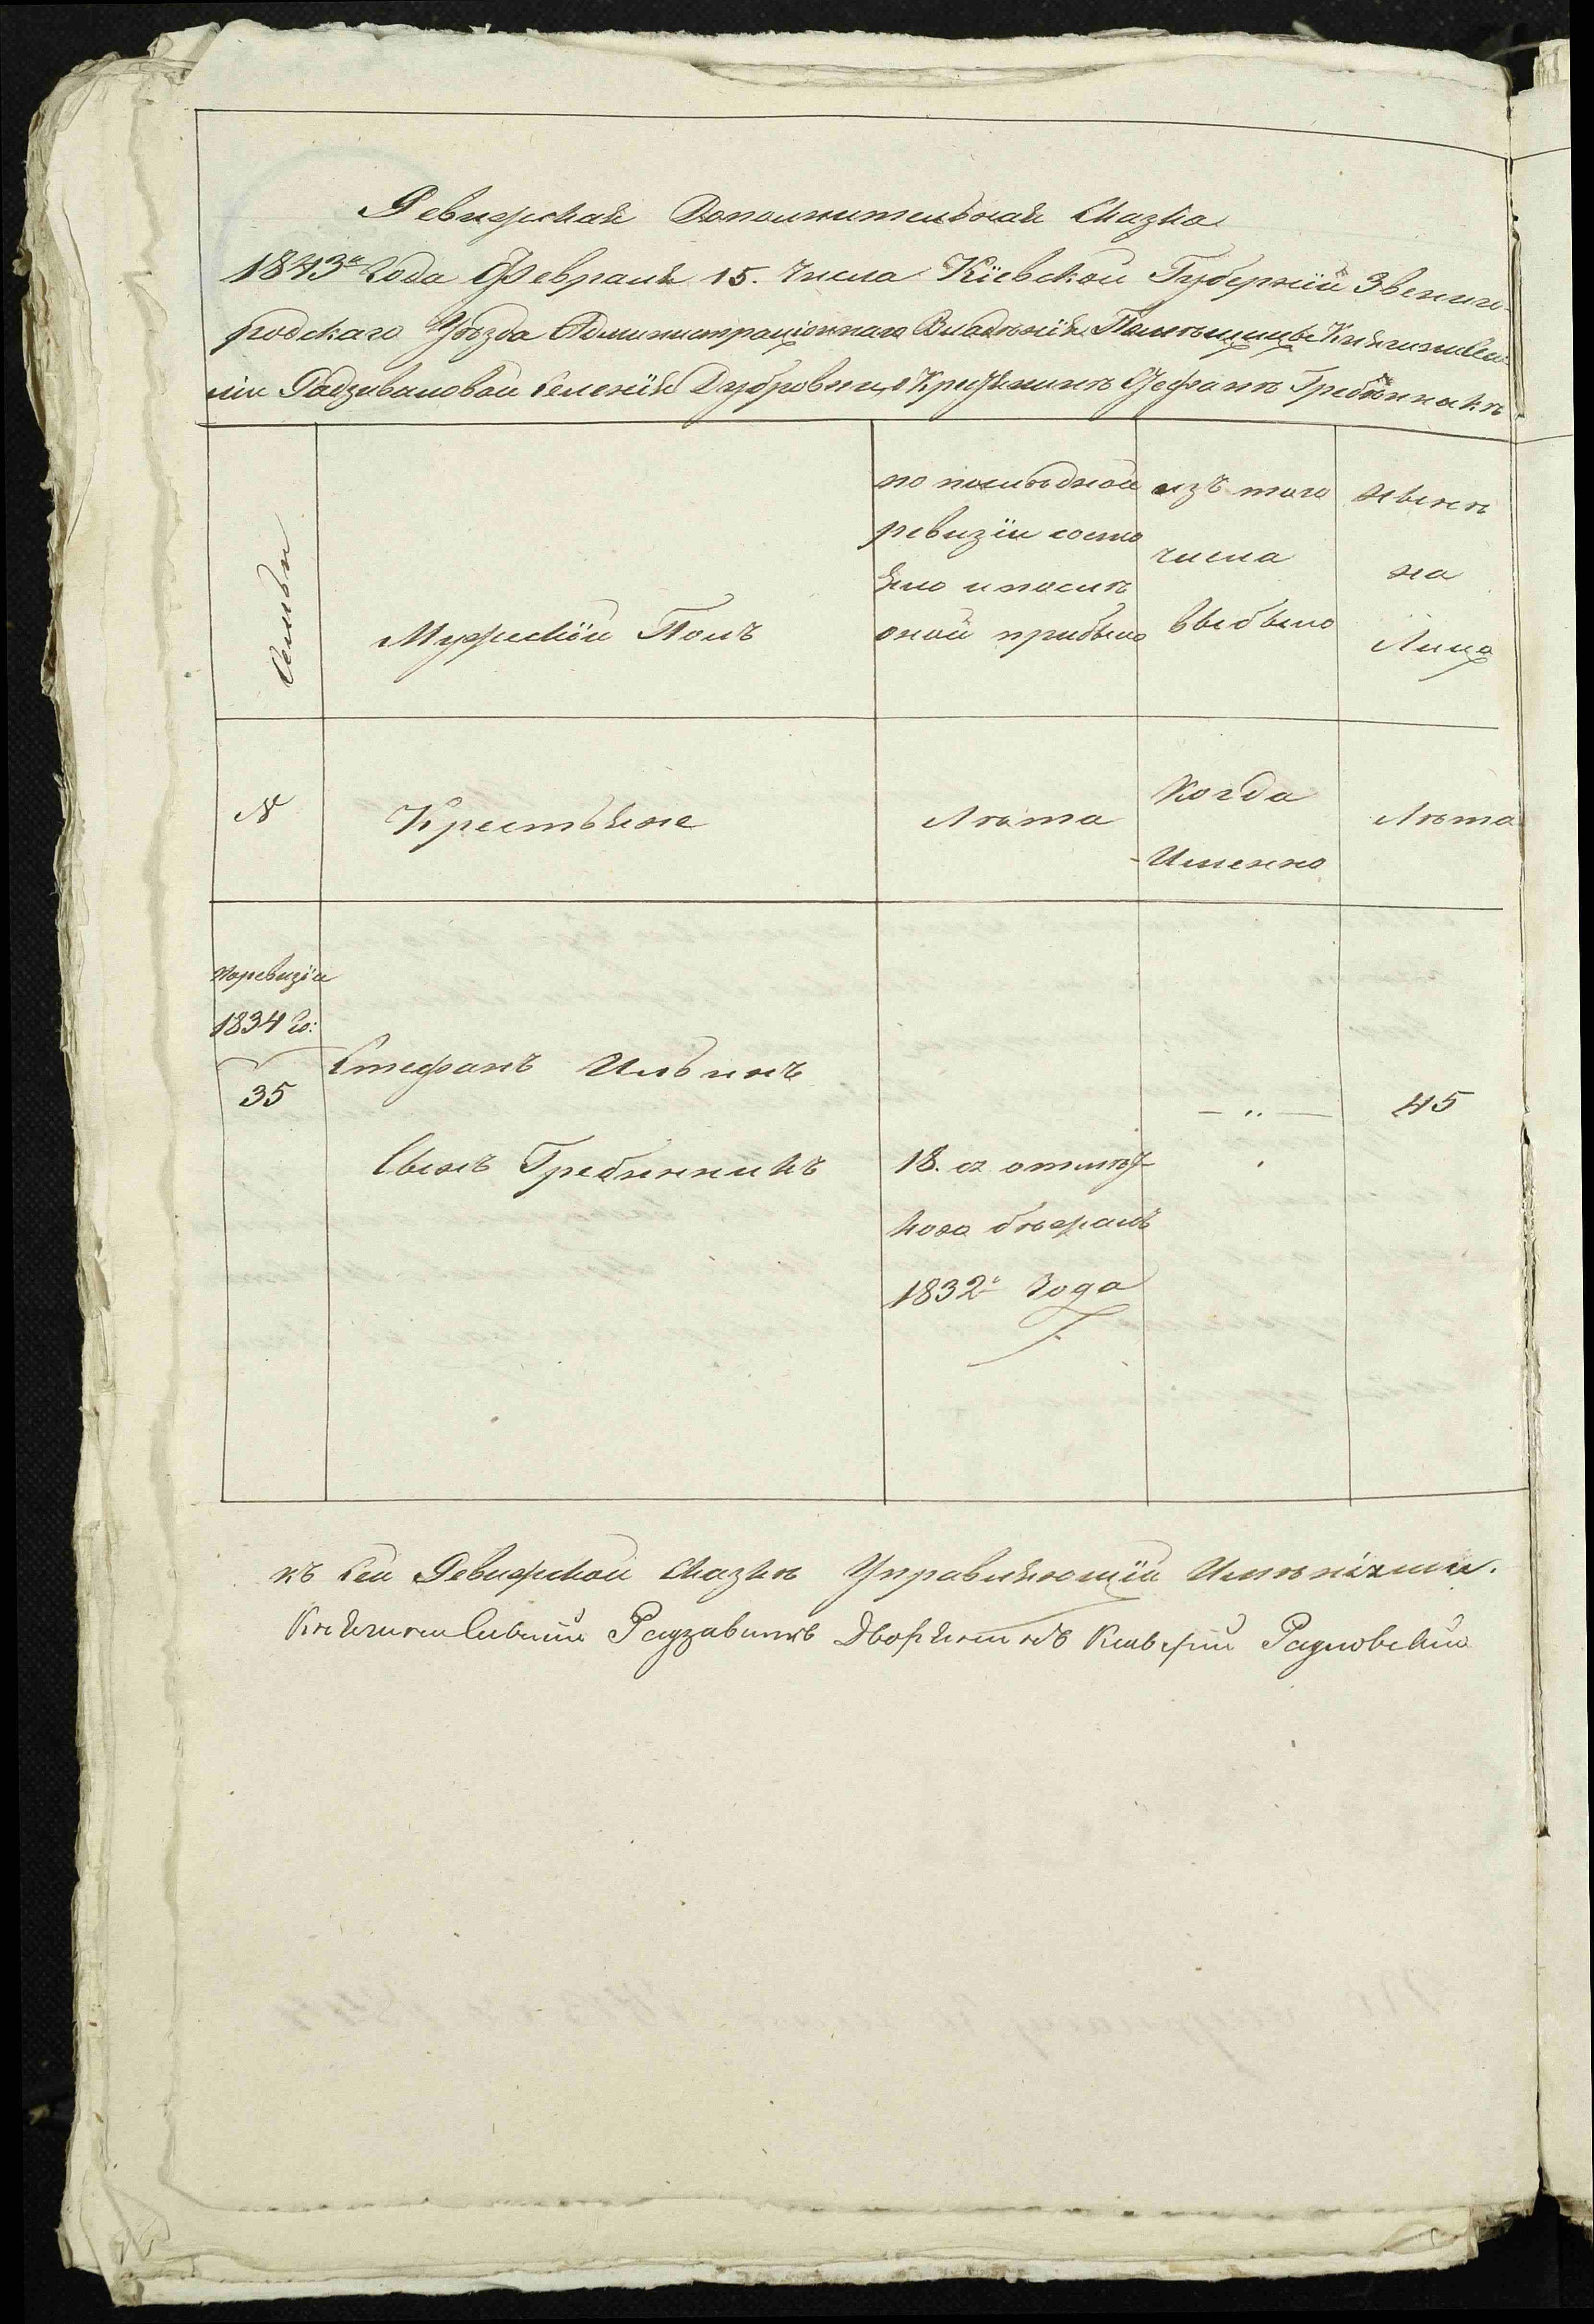 Ревижская Дополнительная Сказка
1843го Года Февраля 15. Числа Кіевской Губерніи Звениго-
родскаго Уѣзда Администраціоннаго Владѣнія Помѣщицы Княгини
Радзивиловой Селенія Дубровки о Стефанѣ Гребѣнникѣ
Семьи
Мужескій Полъ
по послѣдной
ревизіи состо
яло и послѣ
оной прибыло
изъ того
числа
выбыло
нынѣ
на
Лицо
№
Крестьяне
Лѣта
Когда
Именно
Лѣта
По ревизіи
1834 го:
35
Стефанъ Ильинъ
— „ —
45
Сынъ Гребинникъ
18. а отлуч-
кою бѣжалъ
1832го Года
къ сей Ревижской Сказкѣ Управляющій Имѣніями.
Княгини Дворянинъ